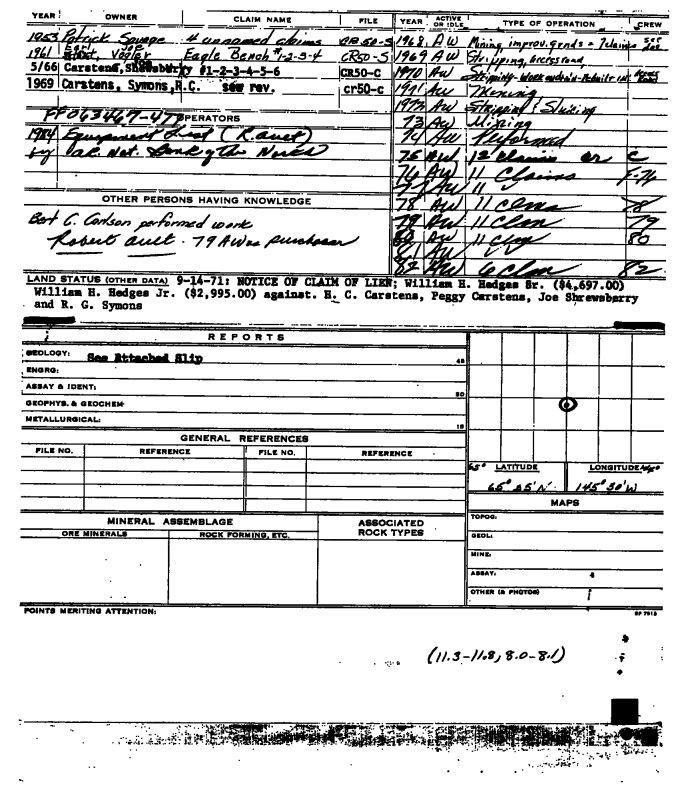 YEAR OWNER CLAIM NAME FILE YEAR ACTIVE OR IDLE TYPE OF OPERATION CREW
1953 Patrick Savage 4 unnamed claims CR 50-S 1968 AW Mining improv. gends = 7 claims
1961 Vogler Eagle Bench #1-2-3-4 CR50-S 1969 AW Stripping, access road
5/66 Carstens, Shewsberry #1-2-3-4-5-6 CR50-C 1970 AW Stripping
1969 Carstens, Symons, R.C. see rev. cr50-c 1971 AW Mining
1972 AW Stripping & Sluicing
FF063467-472 OPERATORS 73 AW Mining
1984 Equipment List (R. Auet) 74 AW Performed
by Nat. Bank of the North 75 AW 12 Claims or C
76 AW 11 Claims F-76
77 AW 11
OTHER PERSONS HAVING KNOWLEDGE 78 AW 11 clms 78
Bert C. Carlson performed work 79 AW 11 clm 79
Robert Auet - 79 AW as purchaser 80 AW 11 clm 80
81 AW
82 AW 6 Clm 82
LAND STATUS (OTHER DATA) 9-14-71: NOTICE OF CLAIM OF LIEN; William H. Hedges Sr. ($4,697.00)
William H. Hedges Jr. ($2,995.00) against. H. C. Carstens, Peggy Carstens, Joe Shrewsberry
and R. G. Symons
REPORTS
GEOLOGY: See Attached Slip 45
ENGRG:
ASSAY & IDENT: 30
GEOPHYS. & GEOCHEM
METALLURGICAL: 15
GENERAL REFERENCES
FILE NO. REFERENCE FILE NO. REFERENCE
65° LATITUDE LONGITUDE
65° 25' N 145° 30' W
MAPS
MINERAL ASSEMBLAGE ASSOCIATED ROCK TYPES
ORE MINERALS ROCK FORMING, ETC.
TOPOG:
GEOL:
MINE:
ASSAY:
OTHER (& PHOTOS)
POINTS MERITING ATTENTION:
(11.3-11.8, 8.0-8.1)